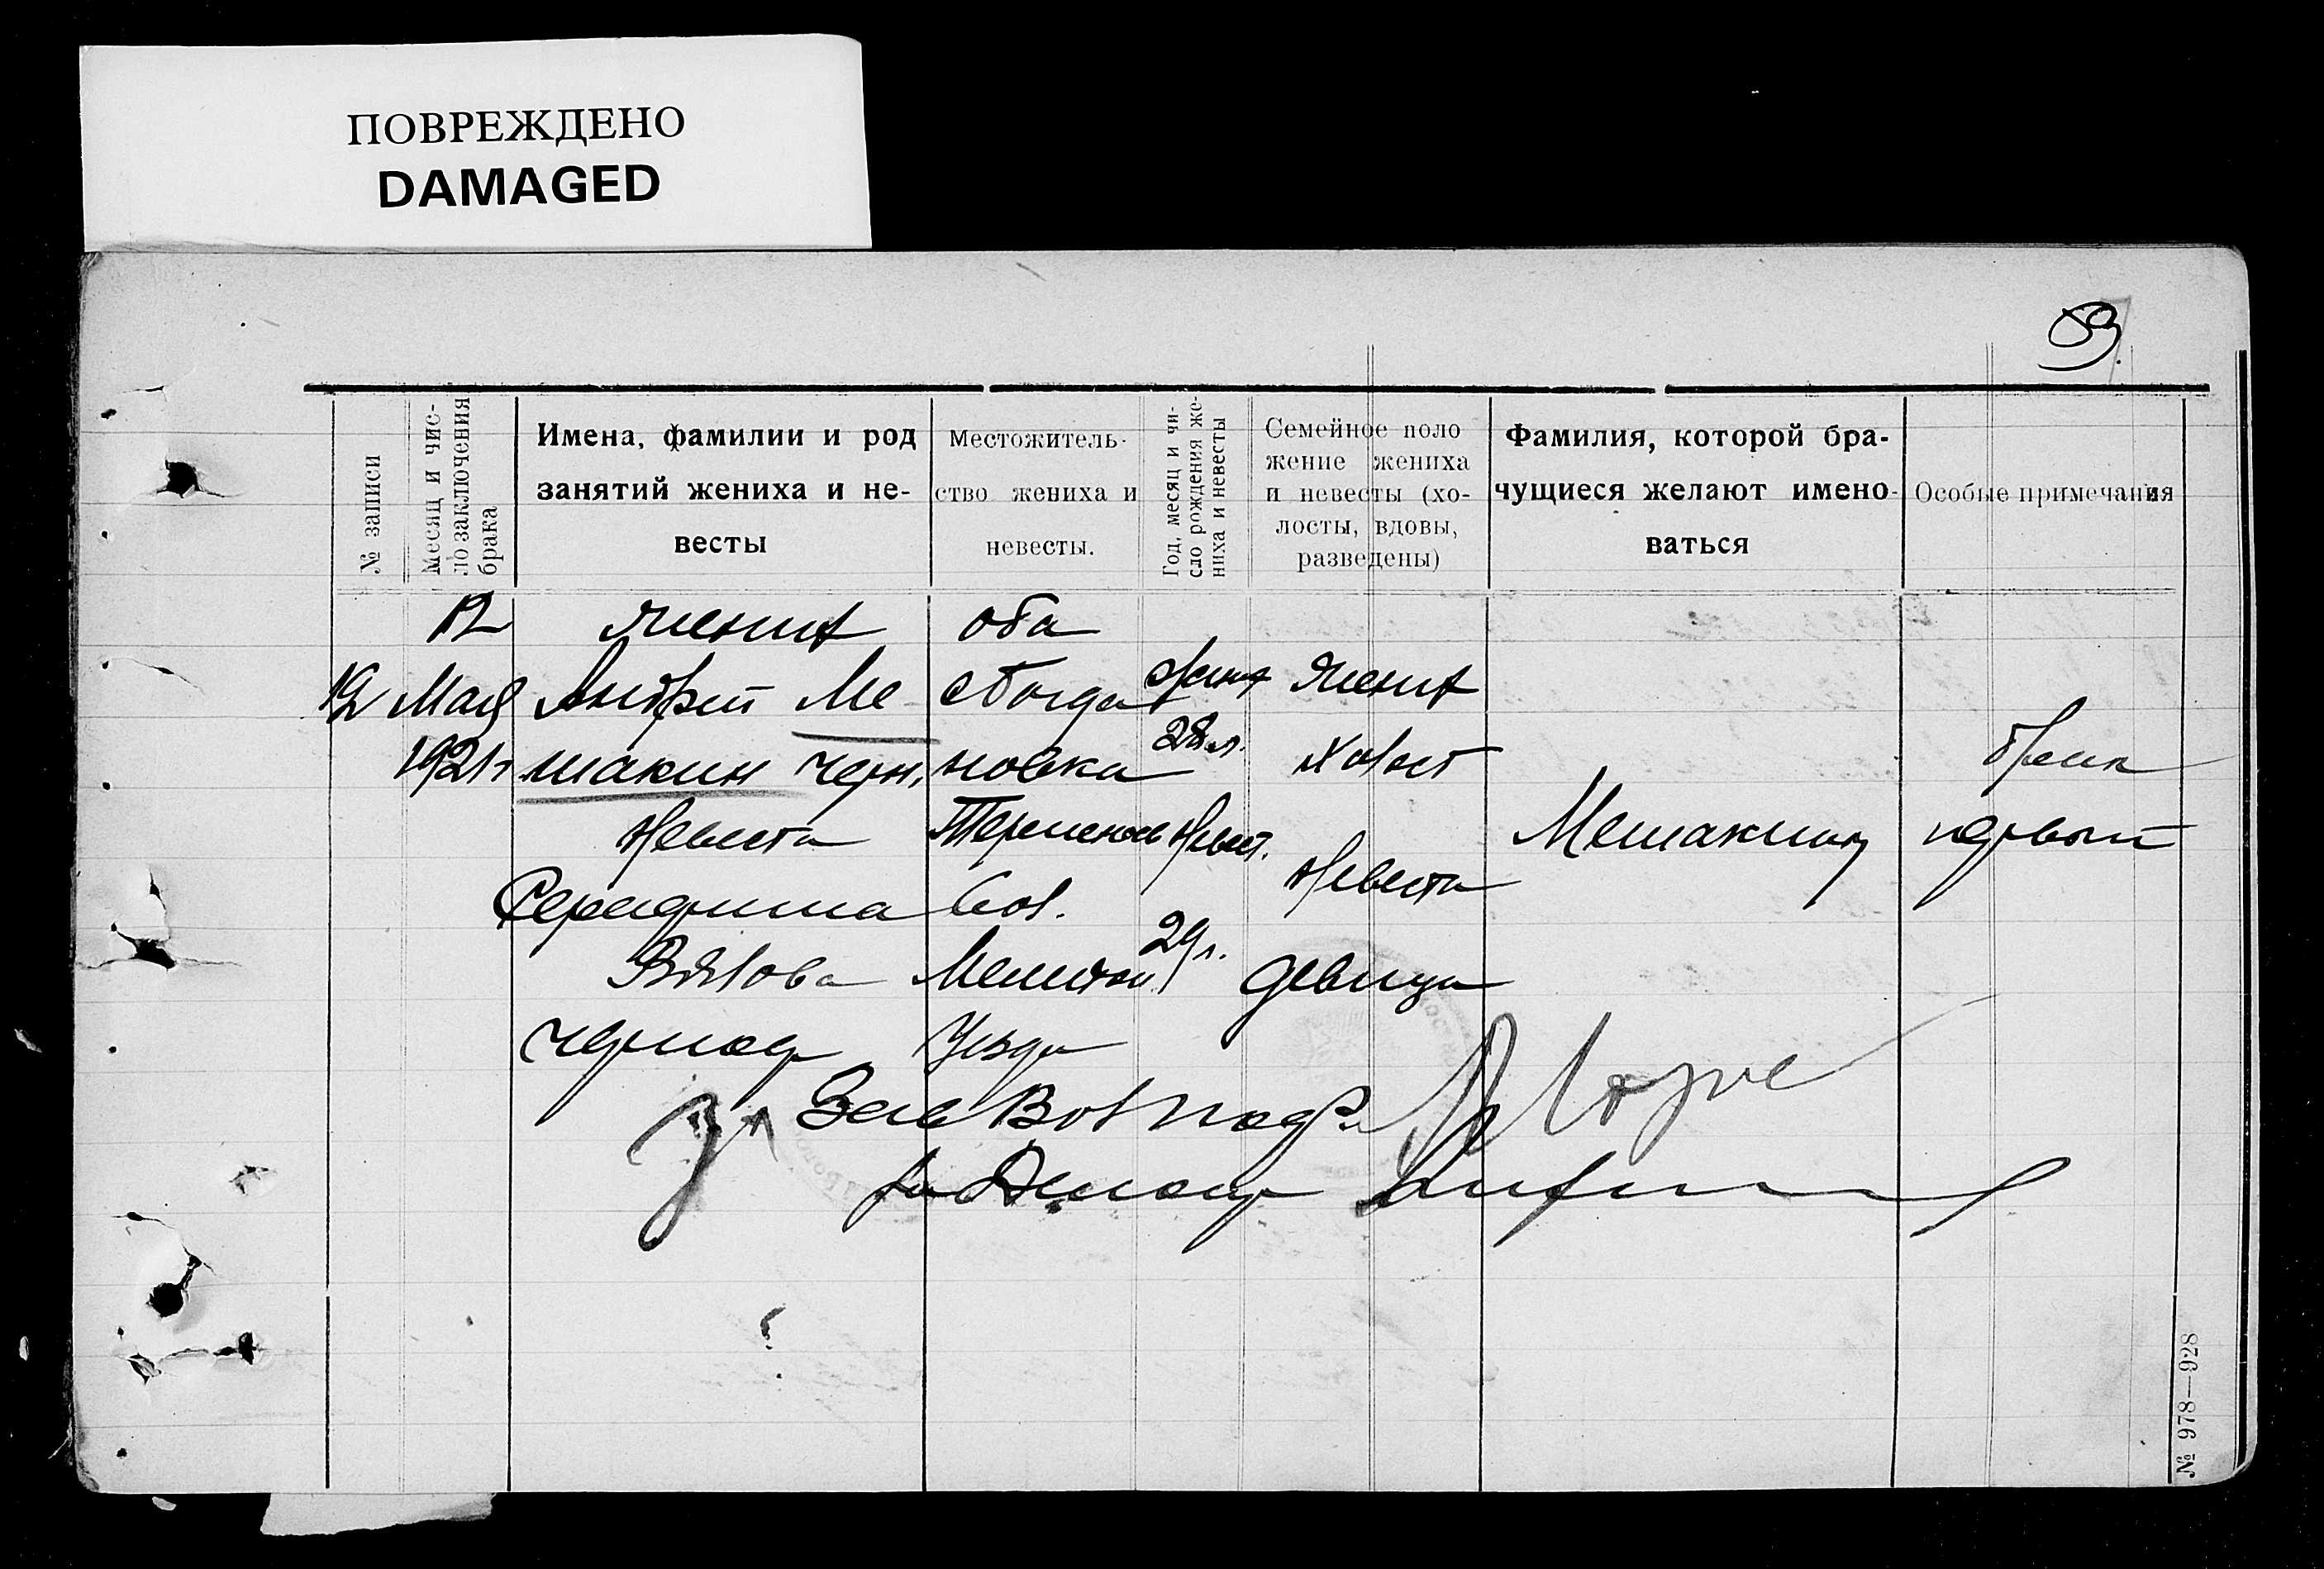 ПОВРЕЖДЕНО
DAMAGED
59
№ записи
Месяц и чис-
ло заключения
брака
Имена, фамилии и род
занятий жениха и не-
весты
Местожитель-
ство жениха и
невесты.
Год, месяц и чи-
сло рождения же-
ниха и невесты
Семейное поло
жение жениха
и невесты (хо-
лосты, вдовы,
разведены)
Фамилия, которой бра-
чущиеся желают имено-
ваться
Особые примечания
19
12
Мая
1921 г
жених
Андрей Ме
шакин черн.
Невеста
Серафима
Вялова
чернор
оба
с Богда
новка
Терпенов
вол.
Мелитоп
Уезда
жених
28 л.
Невест.
29 л.
жених
Холост
Невеста
девица
Мешакины
брак
первый
За Зав Вол подо
№ 978—928